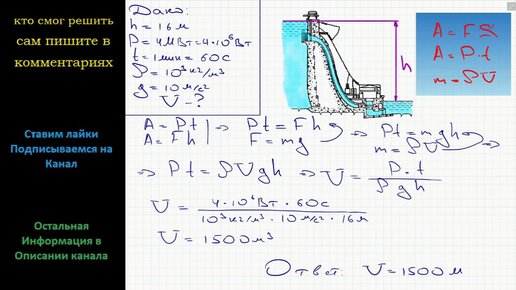 кто смог решить
сам пишите в
комментариях
Ставим лайки
Подписываемся на
Канал
Остальная
Информация в
Описании канала
Дано:
h = 16 м
P = 4 МВт = 4·10⁶ Вт
t = 1 мин = 60 с
ρ = 10³ кг/м³
g = 10 м/с²
V - ?
h
A = FS
A = P·t
m = ρV
A = Pt
A = Fh | => Pt = Fh
F = mg => Pt = mgh
m = ρV
=> Pt = ρVgh => V = P·t / ρgh
V = 4·10⁶ Вт · 60 с / 10³ кг/м³ · 10 м/с² · 16 м
V = 1500 м³
Ответ: V = 1500 м